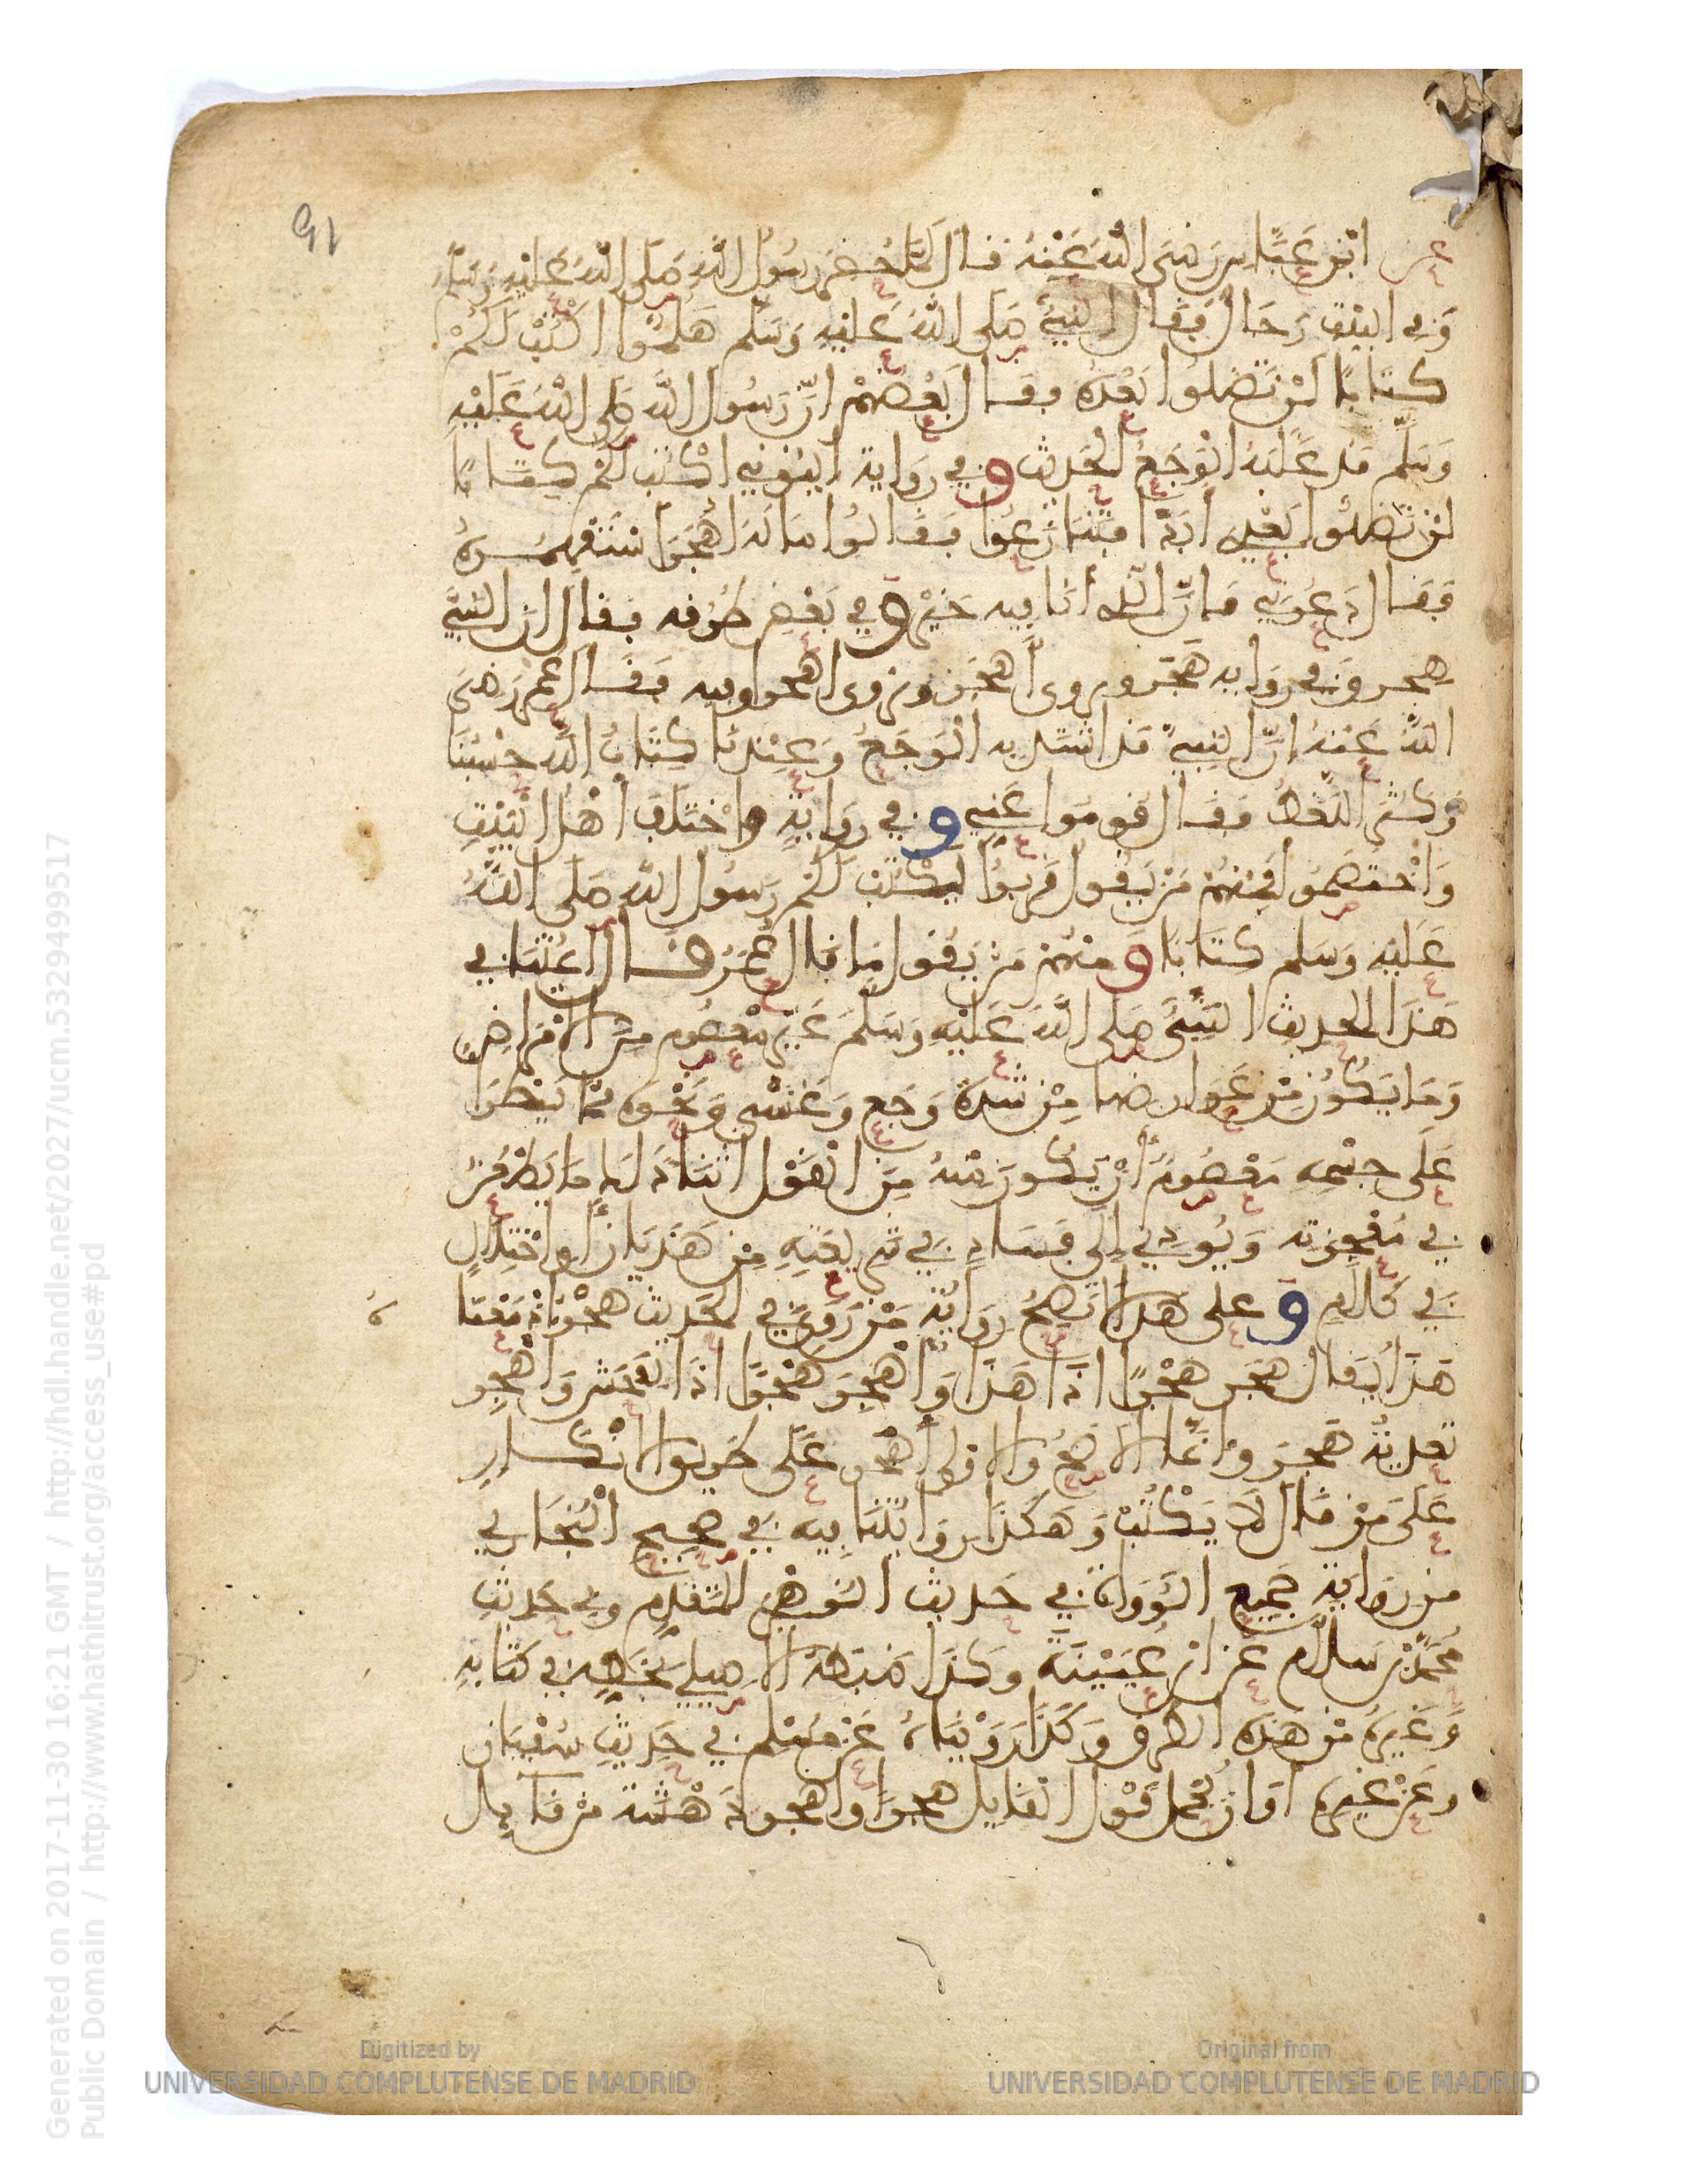 91
عن ابن عباس رضى الله عنه قال لما حضر رسول الله صلى الله عليه وسلم
وفي البيت رجال فقال النبي صلى الله عليه وسلم هلموا اكتب لكم
كتابا لن تضلوا بعده فقال بعضهم ان رسول الله صلى الله عليه
وسلم قد غلبه الوجع الحديث وفي رواية ايتوني اكتب لكم كتابا
لن تضلوا بعده ابدا فتنازعوا فقالوا ماله اهجر استفهموه
فقال دعوني فان الذي انا فيه خير وفي بعض طرقه فقال ان النبي
يهجر وفي رواية هجر ويروى أهجر ويروى اهجرا وفيه فقال عمر رضى
الله عنه إن النبي قد اشتد به الوجع وعندنا كتاب الله حسبنا
وكثر اللغط فقال قوموا عني وفي رواية واختلف أهل البيت
واختصموا فمنهم من يقول قربوا يكتب لكم رسول الله صلى الله
عليه وسلم كتابا ومنهم من يقول ما قال عمر قال ائمتنا في
هذا الحديث النبي صلى الله عليه وسلم غير معصوم من الامراض
وما يكون من عوارضها من شدة وجع وغشي ونحوه مما يطرا
على جسمه معصوم أن يكون منه من القول اثناء ذلك ما يطعن
في معجزته ويودي إلى فساد في شريعته من هذيان أو اختلال
في كلام وعلى هذا لا تصح رواية من روى في الحديث هجر اذ معنا
هذا يقال هجر هجرا اذا هذا وأهجر هجرا اذا افحش وأهجر
تعدية هجر وانما الاصح والاولى أهجر على طريق الانكار
على من قال لا يكتب وهكذا روايتنا فيه في صحيح البخاري
من رواية جميع الرواة في حديث الزهري المتقدم وفي حديث
محمد بن سلام عن ابن عيينة وكذا ضبطه الاصيلي بخطه في كتابه
وغيره من هذه الطرق وكذا رويناه عن مسلم في حديث سفيان
وعن غيره أو ان تحمل قول القايل هجرا واهجر دهشة من قايل